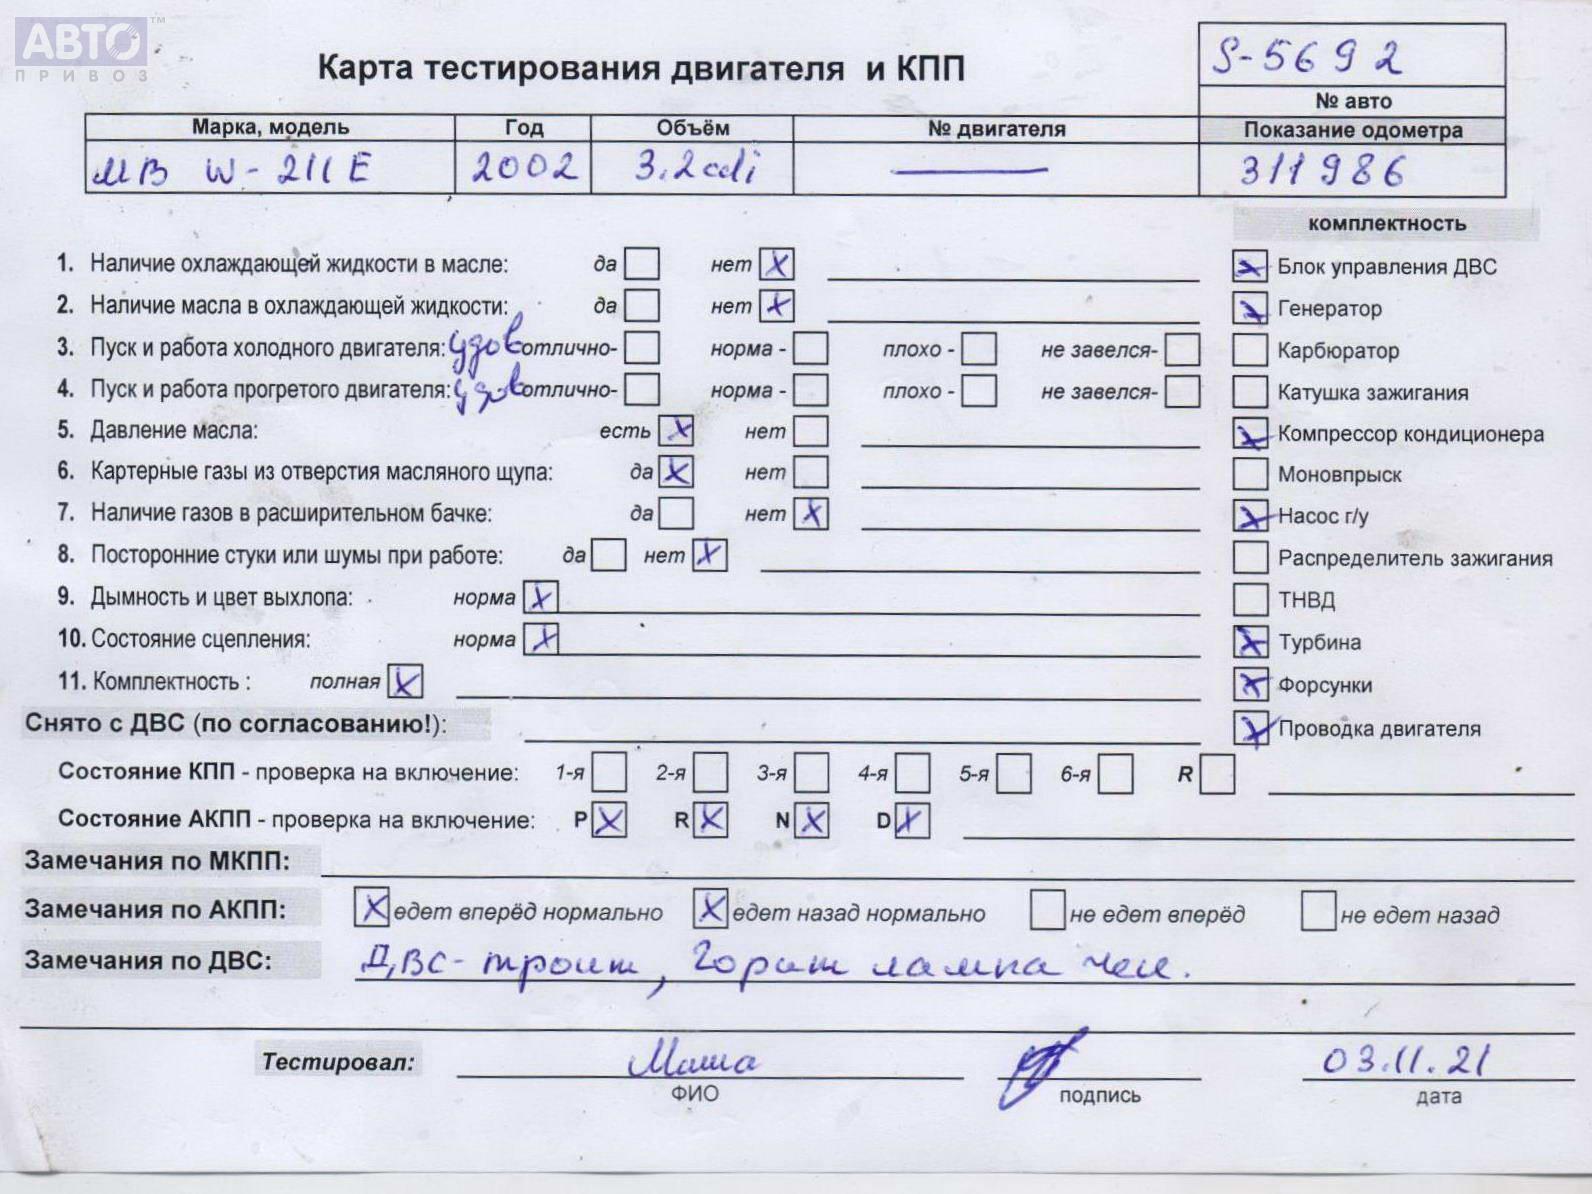 АВТО™
ПРИВОЗ
Карта тестирования двигателя и КПП
S-5692
№ авто
Марка, модель Год Объём № двигателя Показание одометра
MB W-211E 2002 3.2cdi — 311986
комплектность
1. Наличие охлаждающей жидкости в масле: да нет X
Блок управления ДВС X
2. Наличие масла в охлаждающей жидкости: да нет X
Генератор X
3. Пуск и работа холодного двигателя: удов отлично- норма - плохо - не завелся-
Карбюратор
4. Пуск и работа прогретого двигателя: удов отлично- норма - плохо - не завелся-
Катушка зажигания
5. Давление масла: есть X нет
X Компрессор кондиционера
6. Картерные газы из отверстия масляного щупа: да X нет
Моновпрыск
7. Наличие газов в расширительном бачке: да нет X
X Насос г/у
8. Посторонние стуки или шумы при работе: да нет X
Распределитель зажигания
9. Дымность и цвет выхлопа: норма X
ТНВД
10. Состояние сцепления: норма X
X Турбина
11. Комплектность : полная X
X Форсунки
Снято с ДВС (по согласованию!):
X Проводка двигателя
Состояние КПП - проверка на включение: 1-я 2-я 3-я 4-я 5-я 6-я R
Состояние АКПП - проверка на включение: P X R X N X D X
Замечания по МКПП:
Замечания по АКПП: X едет вперёд нормально X едет назад нормально не едет вперёд не едет назад
Замечания по ДВС: ДВС-троит, горит лампа чек.
Тестировал: Маша 03.11.21
ФИО подпись дата